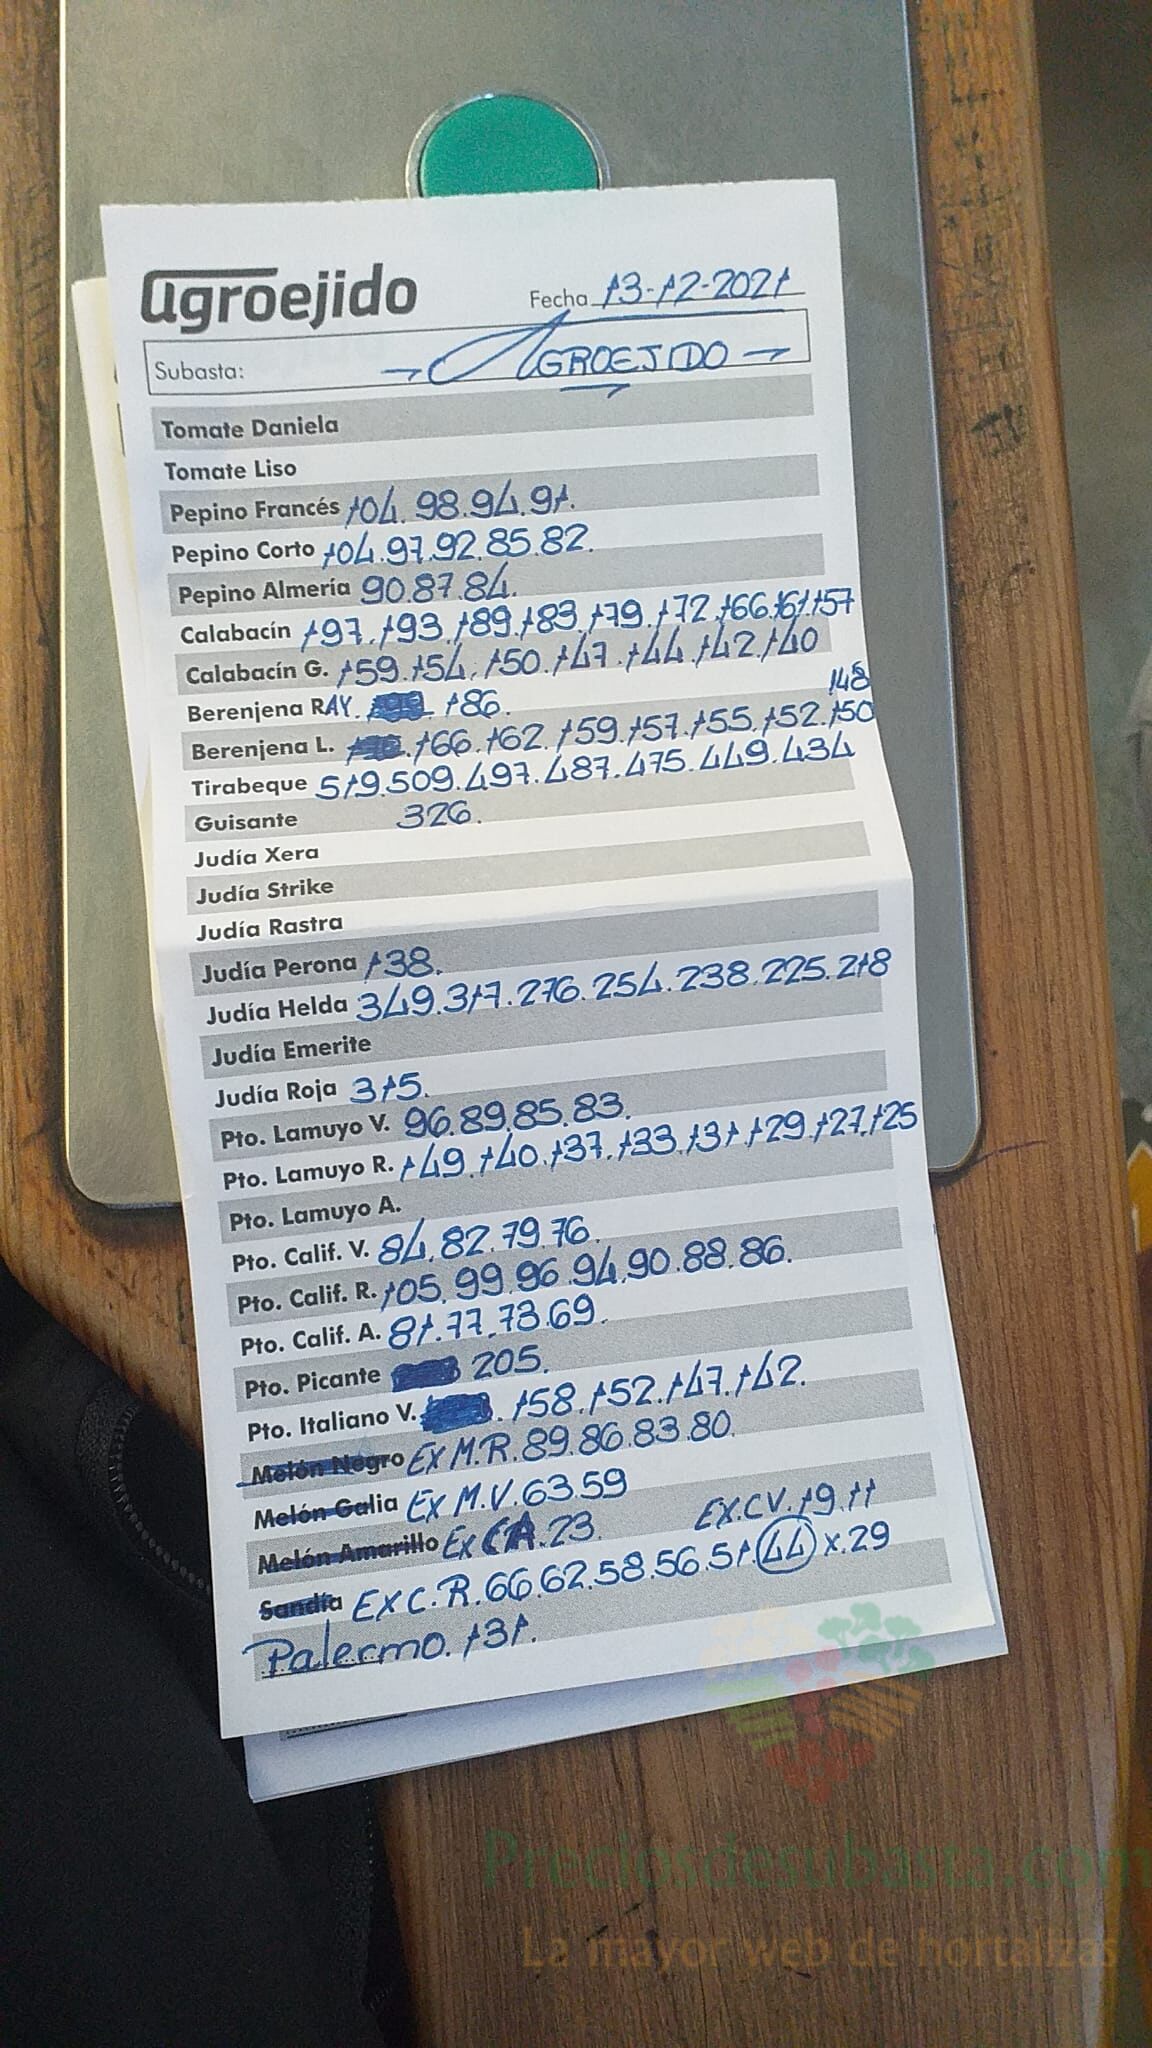 agroejido
Fecha 13-12-2021
Subasta: → AGROEJIDO →
Tomate Daniela
Tomate Liso
Pepino Francés 104.98.94.91.
Pepino Corto 104.97.92.85.82.
Pepino Almería 90.87.84.
Calabacín 197.193.189.183.179.172.166.161.157
Calabacín G. 159.154.150.147.144.142.140
Berenjena RAY. 186.
148
Berenjena L. 166.162.159.157.155.152.150
Tirabeque 519.509.497.487.475.449.434
Guisante 326.
Judía Xera
Judía Strike
Judía Rastra
Judía Perona 138.
Judía Helda 349.317.276.254.238.225.218
Judía Emerite
Judía Roja 315.
Pto. Lamuyo V. 96.89.85.83.
Pto. Lamuyo R. 149.140.137.133.131.129.127.125
Pto. Lamuyo A.
Pto. Calif. V. 84.82.79.76.
Pto. Calif. R. 105.99.96.94.90.88.86.
Pto. Calif. A. 81.77.73.69.
Pto. Picante 205.
Pto. Italiano V. 158.152.147.142.
Melón Negro Ex M.R.89.86.83.80.
Melón Galia Ex M.V.63.59
Melón Amarillo Ex CA.23. EX.CV.19.11
Sandía EX C.R.66.62.58.56.51.44 x.29
Palermo.131.
Preciosdesubasta.com
La mayor web de hortalizas